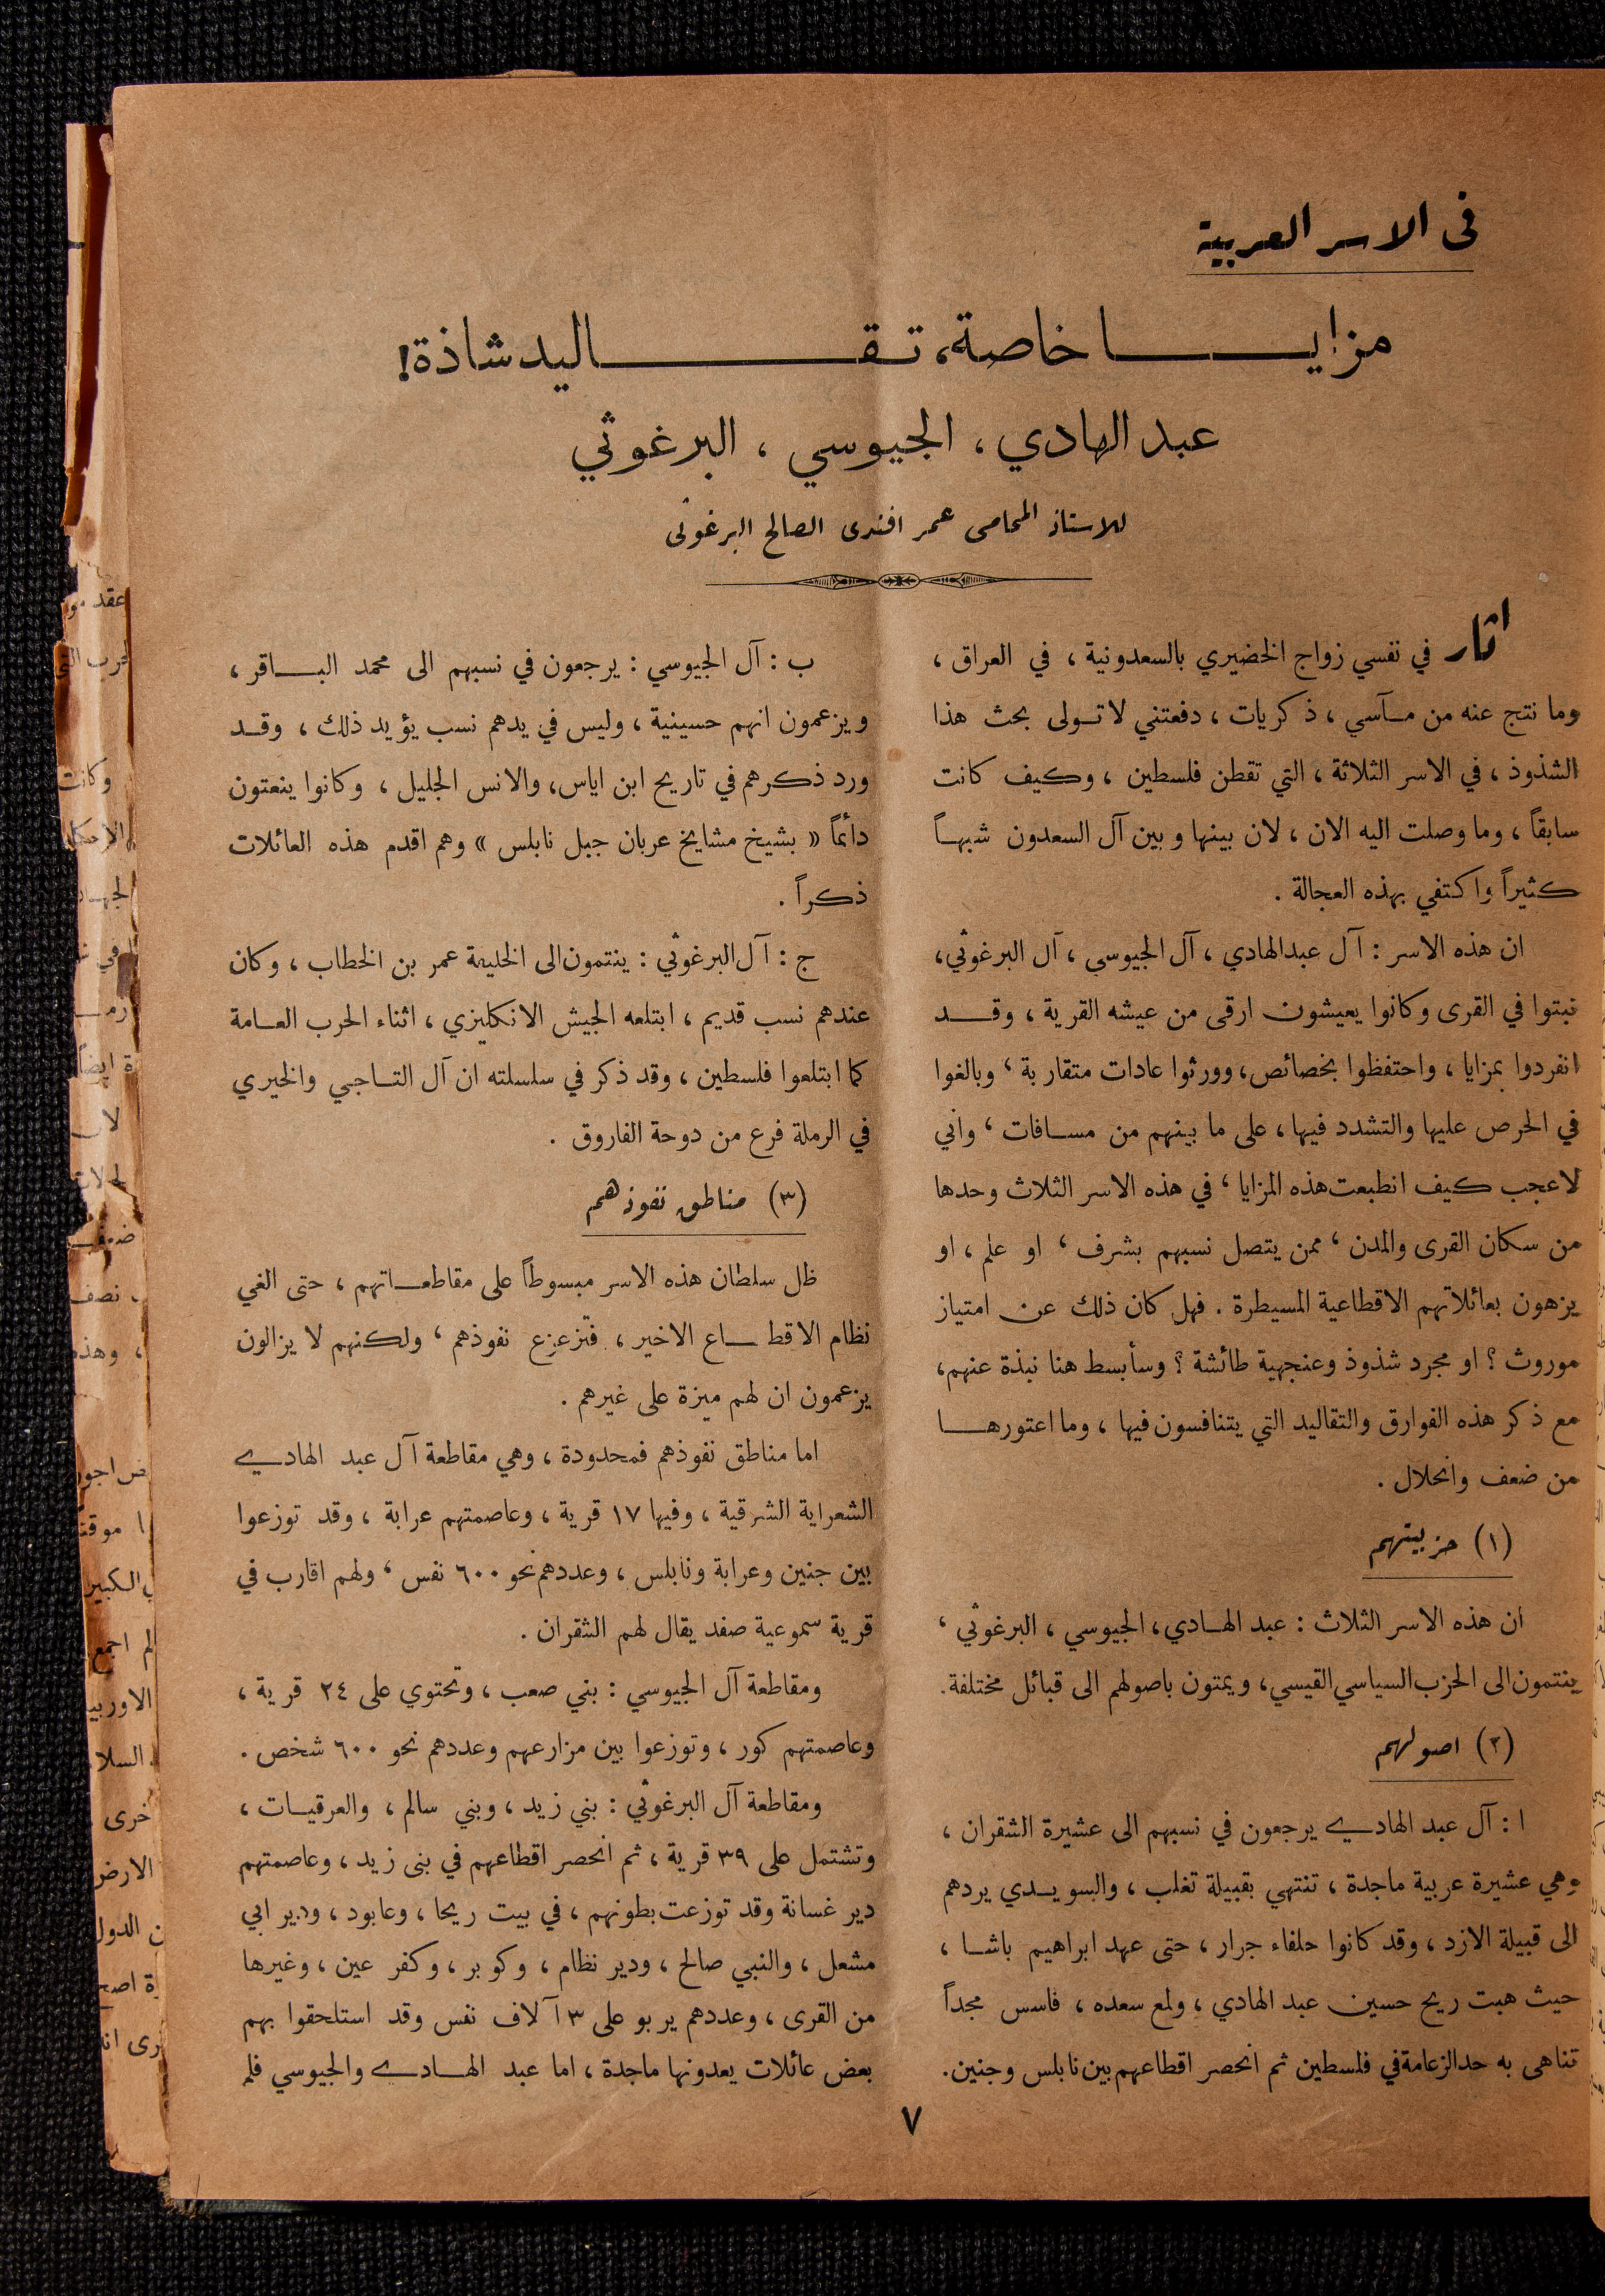 في الاسر العربية
مزايا خاصة، تقاليد شاذة!
عبد الهادي، الجيوسي، البرغوثي
للاستاذ المحامي عمر افندي الصالح البرغوثي
اثار في نفسي زواج الخضيري بالسعدونية، في العراق،
وما نتج عنه من مآسي، ذكريات، دفعتني لاتولى بحث هذا
الشذوذ، في الاسر الثلاثة، التي تقطن فلسطين، وكيف كانت
سابقاً، وما وصلت اليه الان، لان بينها وبين آل السعدون شبهاً
كثيراً واكتفي بهذه العجالة.
ان هذه الاسر: آل عبدالهادي، آل الجيوسي، آل البرغوثي،
نبتوا في القرى وكانوا يعيشون ارقى من عيشه القرية، وقد
انفردوا بمزايا، واحتفظوا بخصائص، وورثوا عادات متقاربة، وبالغوا
في الحرص عليها والتشدد فيها، على ما بينهم من مسافات، واني
لاعجب كيف انطبعت هذه المزايا، في هذه الاسر الثلاث وحدها
من سكان القرى والمدن، ممن يتصل نسبهم بشرف، او علم، او
يزهون بعائلاتهم الاقطاعية المسيطرة. فهل كان ذلك عن امتياز
موروث؟ او مجرد شذوذ وعنجهية طائشة؟ وسأبسط هنا نبذة عنهم،
مع ذكر هذه الفوارق والتقاليد التي يتنافسون فيها، وما اعتورها
من ضعف وانحلال.
(١) حزبيتهم
ان هذه الاسر الثلاث: عبد الهادي، الجيوسي، البرغوثي،
ينتمون الى الحزب السياسي القيسي، ويمتون باصولهم الى قبائل مختلفة.
(٢) اصولهم
ا: آل عبد الهادي يرجعون في نسبهم الى عشيرة الشقران،
وهي عشيرة عربية ماجدة، تنتهي بقبيلة تغلب، والسويدي يردهم
الى قبيلة الازد، وقد كانوا حلفاء جرار، حتى عهد ابراهيم باشا،
حيث هبت ريح حسين عبد الهادي، ولمع سعده، فاسس مجداً
تناهى به حد الزعامة في فلسطين ثم انحصر اقطاعهم بين نابلس وجنين.
ب: آل الجيوسي: يرجعون في نسبهم الى محمد الباقر،
ويزعمون انهم حسينية، وليس في يدهم نسب يؤيد ذلك، وقد
ورد ذكرهم في تاريخ ابن اياس، والانس الجليل، وكانوا ينعتون
دائماً «بشيخ مشايخ عربان جبل نابلس» وهم اقدم هذه العائلات
ذكراً.
ج: آل البرغوثي: ينتمون الى الخليفة عمر بن الخطاب، وكان
عندهم نسب قديم، ابتلعه الجيش الانكليزي، اثناء الحرب العامة
كما ابتلعوا فلسطين، وقد ذكر في سلسلته ان آل التاجي والخيري
في الرملة فرع من دوحة الفاروق.
(٣) مناطق نفوذهم
ظل سلطان هذه الاسر مبسوطاً على مقاطعاتهم، حتى الغي
نظام الاقطاع الاخير، فتزعزع نفوذهم، ولكنهم لا يزالون
يزعمون ان لهم ميزة على غيرهم.
اما مناطق نفوذهم فمحدودة، وهي مقاطعة آل عبد الهادي
الشعراية الشرقية، وفيها ١٧ قرية، وعاصمتهم عرابة، وقد توزعوا
بين جنين وعرابة ونابلس، وعددهم نحو ٦٠٠ نفس، ولهم اقارب في
قرية سموعية صفد يقال لهم الشقران.
ومقاطعة آل الجيوسي: بني صعب، وتحتوي على ٢٤ قرية،
وعاصمتهم كور، وتوزعوا بين مزارعهم وعددهم نحو ٦٠٠ شخص.
ومقاطعة آل البرغوثي: بني زيد، وبني سالم، والعرقيات،
وتشتمل على ٣٩ قرية، ثم انحصر اقطاعهم في بنى زيد، وعاصمتهم
دير غسانة وقد توزعت بطونهم، في بيت ريحا، وعابود، ودير ابي
مشعل، والنبي صالح، ودير نظام، وكوبر، وكفر عين، وغيرها
من القرى، وعددهم يربو على ٣ آلاف نفس وقد استلحقوا بهم
بعض عائلات يعدونها ماجدة، اما عبد الهادي والجيوسي فلم
٧